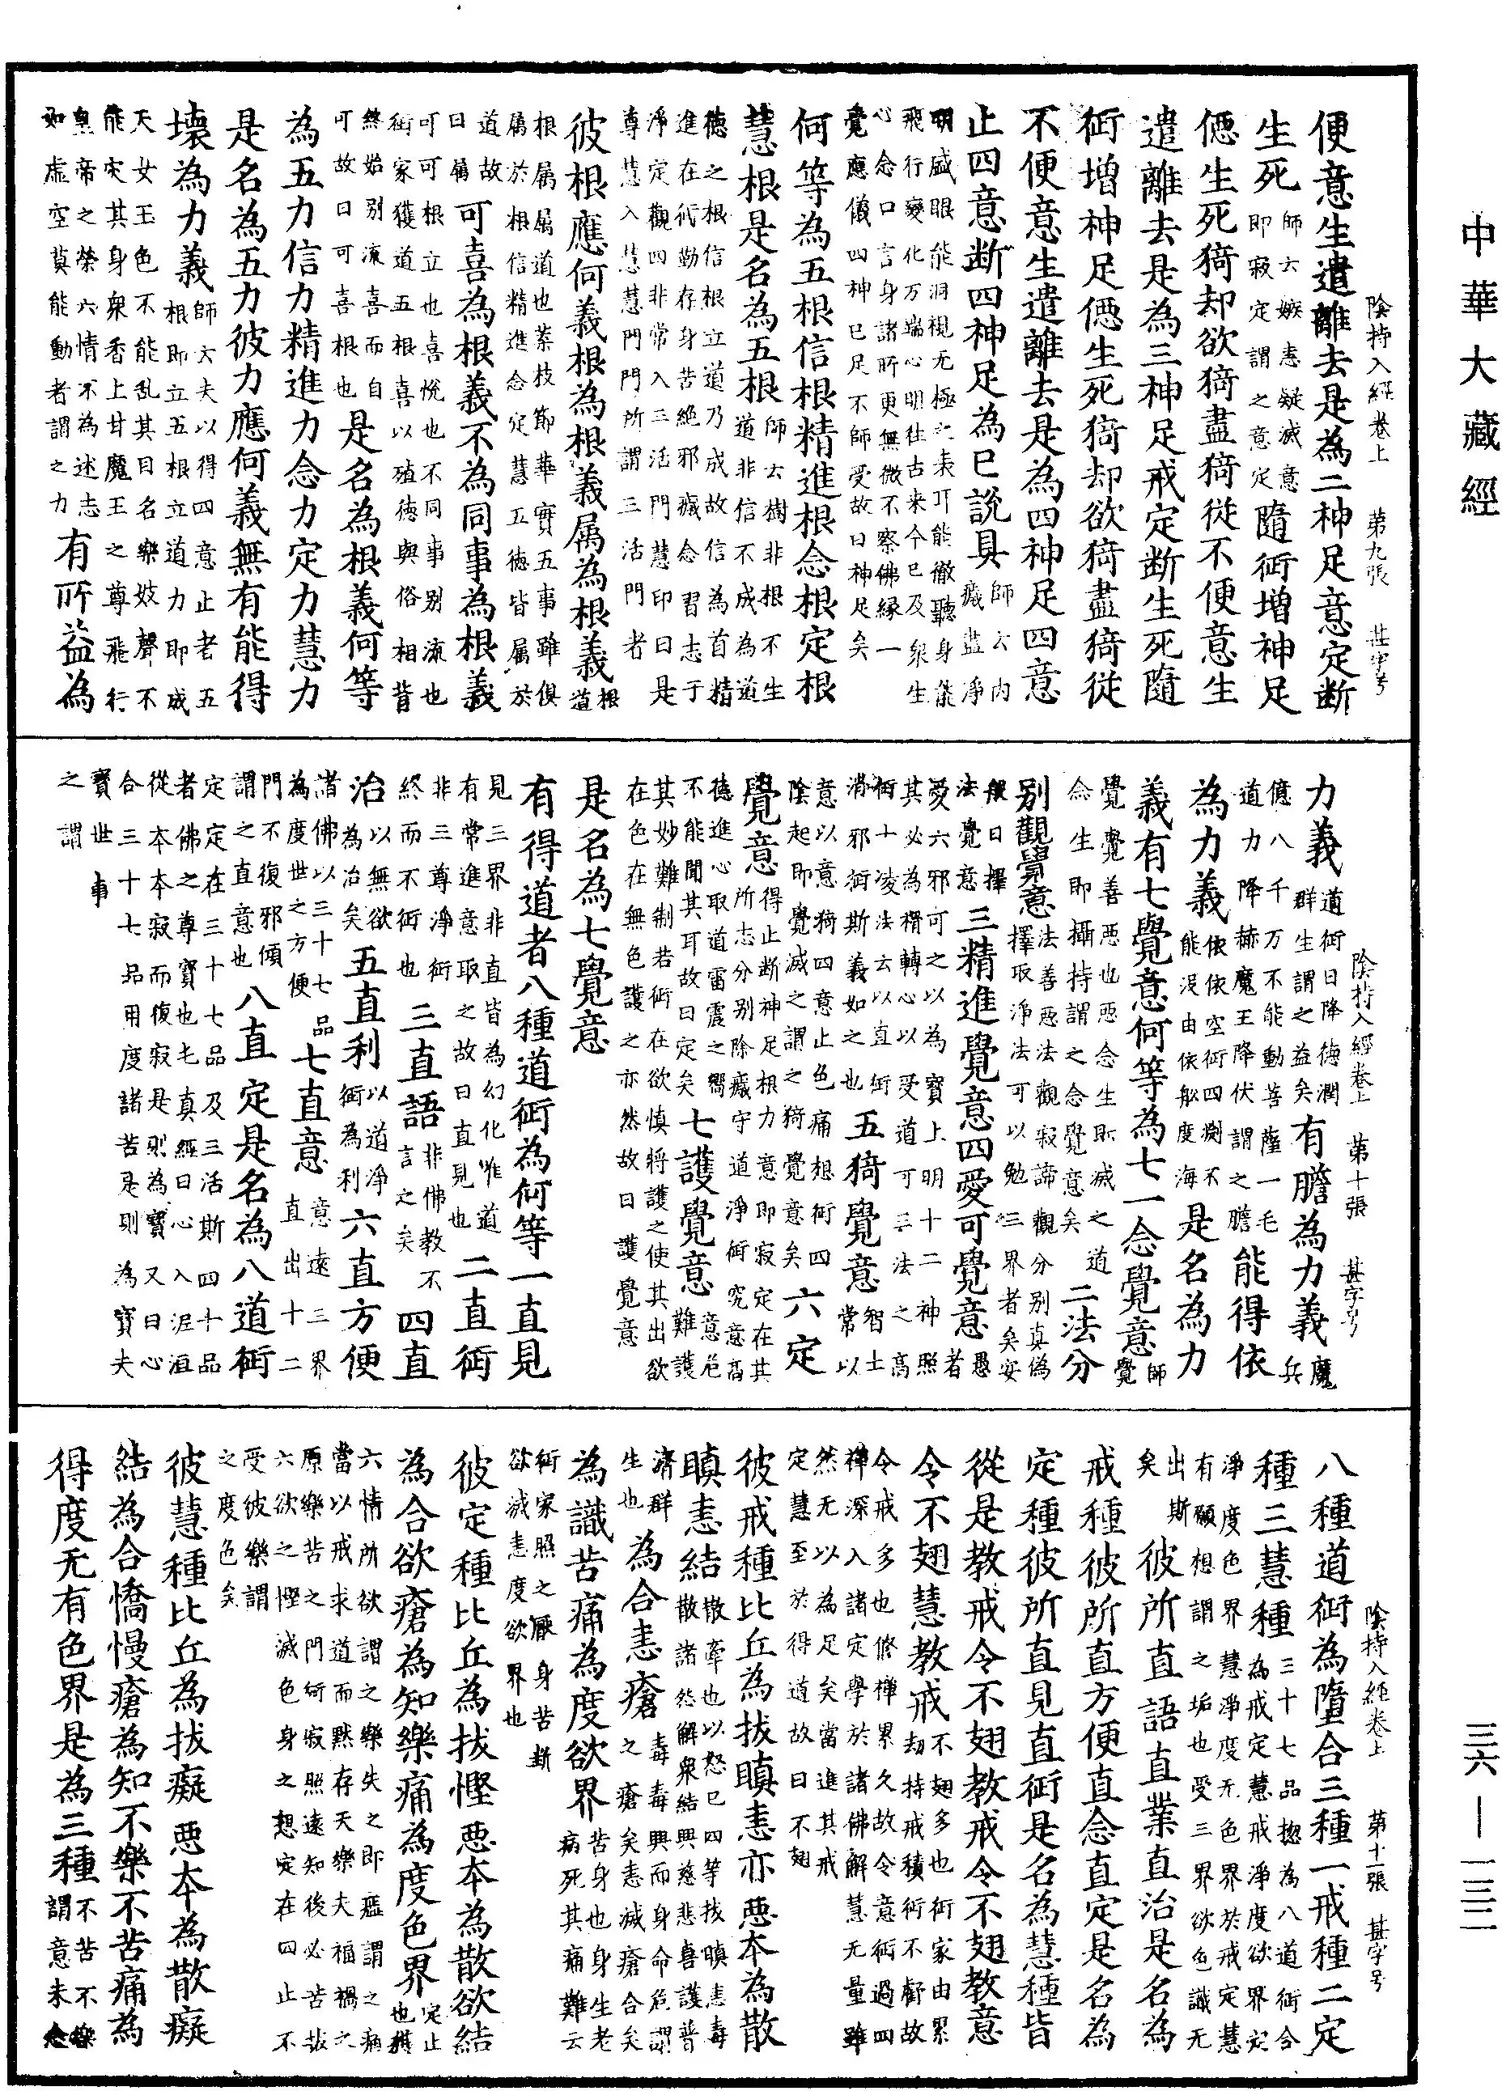 中華大藏經
三六—一三二
陰持入經卷上　第九張　甚字号
便意生遣離去是為二神足意定断
生死師云嫉恚疑滅意即寂定謂之意定隨術增神足
僫生死猗却欲猗盡猗從不便意生
遣離去是為三神足戒定断生死隨
術增神足僫生死猗却欲猗盡猗從
不便意生遣離去是為四神足四意
止四意断四神足為已說具師云内癡盡淨
明盛眼能洞視无極之表耳能徹聽身儀飛行變化万端心明往古来今已及衆生
心念口言身諸所更無微不察佛緣一覺應儀四神已足不師受故曰神足矣
何等為五根信根精進根念根定根
慧根是名為五根師云樹非根不生道非信不成為道
德之根信根立道乃成故信為首精進在術勤存身苦絕邪癡念習志于
淨定觀四非常入三活門慧印曰是尊慧入慧慧門門所謂三活門者
彼根應何義根為根義属為根義根道
根属属道也蓁枝節華實五事雖俱属於根信精進念定慧五德皆属於
道故曰属可喜為根義不為同事為根義
可可根立也喜悅也不同事别流也術家獲道五根喜以殖德與俗相背
終始别流喜而自可故曰可喜根也是名為根義何等
為五力信力精進力念力定力慧力
是名為五力彼力應何義無有能得
壞為力義師六夫以得四意止者五根即立五根立道力即成
天女玉色不能乱其目名樂妓聲不能㝎其身衆香上甘魔王之尊飛行
皇帝之榮六情不為述志如虛空莫能動者謂之力有所益為
陰持入經卷上　第十張　甚字号
力義道術日降德潤群生謂之益矣有膽為力義魔兵
億八千万不能動菩薩一毛道力降赫魔王降伏謂之膽能得依
為力義依依空術四惻不能没由依舩度海是名為力
義有七覺意何等為七一念覺意師覺
覺覺善惡也惡念生即滅之道念生即攝持謂之念覺意矣二法分
别觀覺意法善惡法觀寂諦觀分别真偽擇取淨法可以勉三界者矣安
般曰擇法覺意三精進覺意四愛可覺意者愚
愛六邪可之以為寶上明十二神照其必為榾轉心以受道可三法之高
術十凌法去以直術智士消邪術斯義如之也五猗覺意常以
意以意猗四意止色痛根想術四陰起即覺滅之謂之猗覺意矣六定
覺意得止断神足根力意即寂定在其所志分别除癡守道淨術究意高
德進心取道雷震之嚮不能聞其耳故曰定矣七護覺意意危難護
其妙難制若術在欲慎將護之使其出欲在色在無色護之亦然故曰護覺意
是名為七覺意
有得道者八種道術為何等一直見
見三界非直皆為幻化惟道有常進意取之故曰直見也二直術
非三尊淨術終而不術也三直語非佛教不言之矣四直
治以無欲為治矣五直利以道淨術為利六直方便
諸佛以三十七品為度世之方便七直意意遠三界直出十二
門不復邪傾謂之直意也八直定是名為八道術
定定在三十七品及三活斯四十品者佛之尊寶也乇真經曰心入泥洹
從本本寂而復寂是則為寶又曰心合三十七品用度諸苦是則為寶夫
寶世事之謂
陰持入經卷上　第十一張　甚字号
八種道術為墮合三種一戒種二定
種三慧種三十七品揔為八道術合為戒定慧戒淨度欲界定
淨度色界慧淨度无色界於戒定慧有願想謂之垢也受三界欲色識无
出斯矣彼所直語直業直治是名為
戒種彼所直方便直念直定是名為
定種彼所直見直術是名為慧種皆
從是教戒令不翅教戒令不翅教意
令不翅慧教戒不翅多也術家由累劫持戒積術不虧故
令戒多也脩禪累久故令意術過四禪深入諸定學於諸佛解慧无量雖
然无以為足矣當進其戒定慧至於得道故曰不翅
彼戒種比丘為拔瞋恚亦惡本為散
瞋恚結散牽也以怒已四等拔瞋恚毒散諸然解衆結興慈悲喜護普
濟群生也為合恚瘡毒毒興而身命危謂之瘡矣恚滅瘡合矣
為識苦痛為度欲界苦身也身生老病死其痛難云
術家照之厭身苦斷欲滅恚度欲界也
彼定種比丘為拔慳惡本為散欲結
為合欲瘡為知樂痛為度色界定止也
六情所欲謂之樂失之即尶謂之痛當以戒求道而默存天樂夫福禍之
原樂苦之門術寂照遠知後必苦故六欲之慳滅色身之想定在四止不
受彼樂謂之度色矣
彼慧種比丘為拔癡惡本為散癡
結為合憍慢瘡為知不樂不苦痛為
得度无有色界是為三種不苦不樂謂意未念